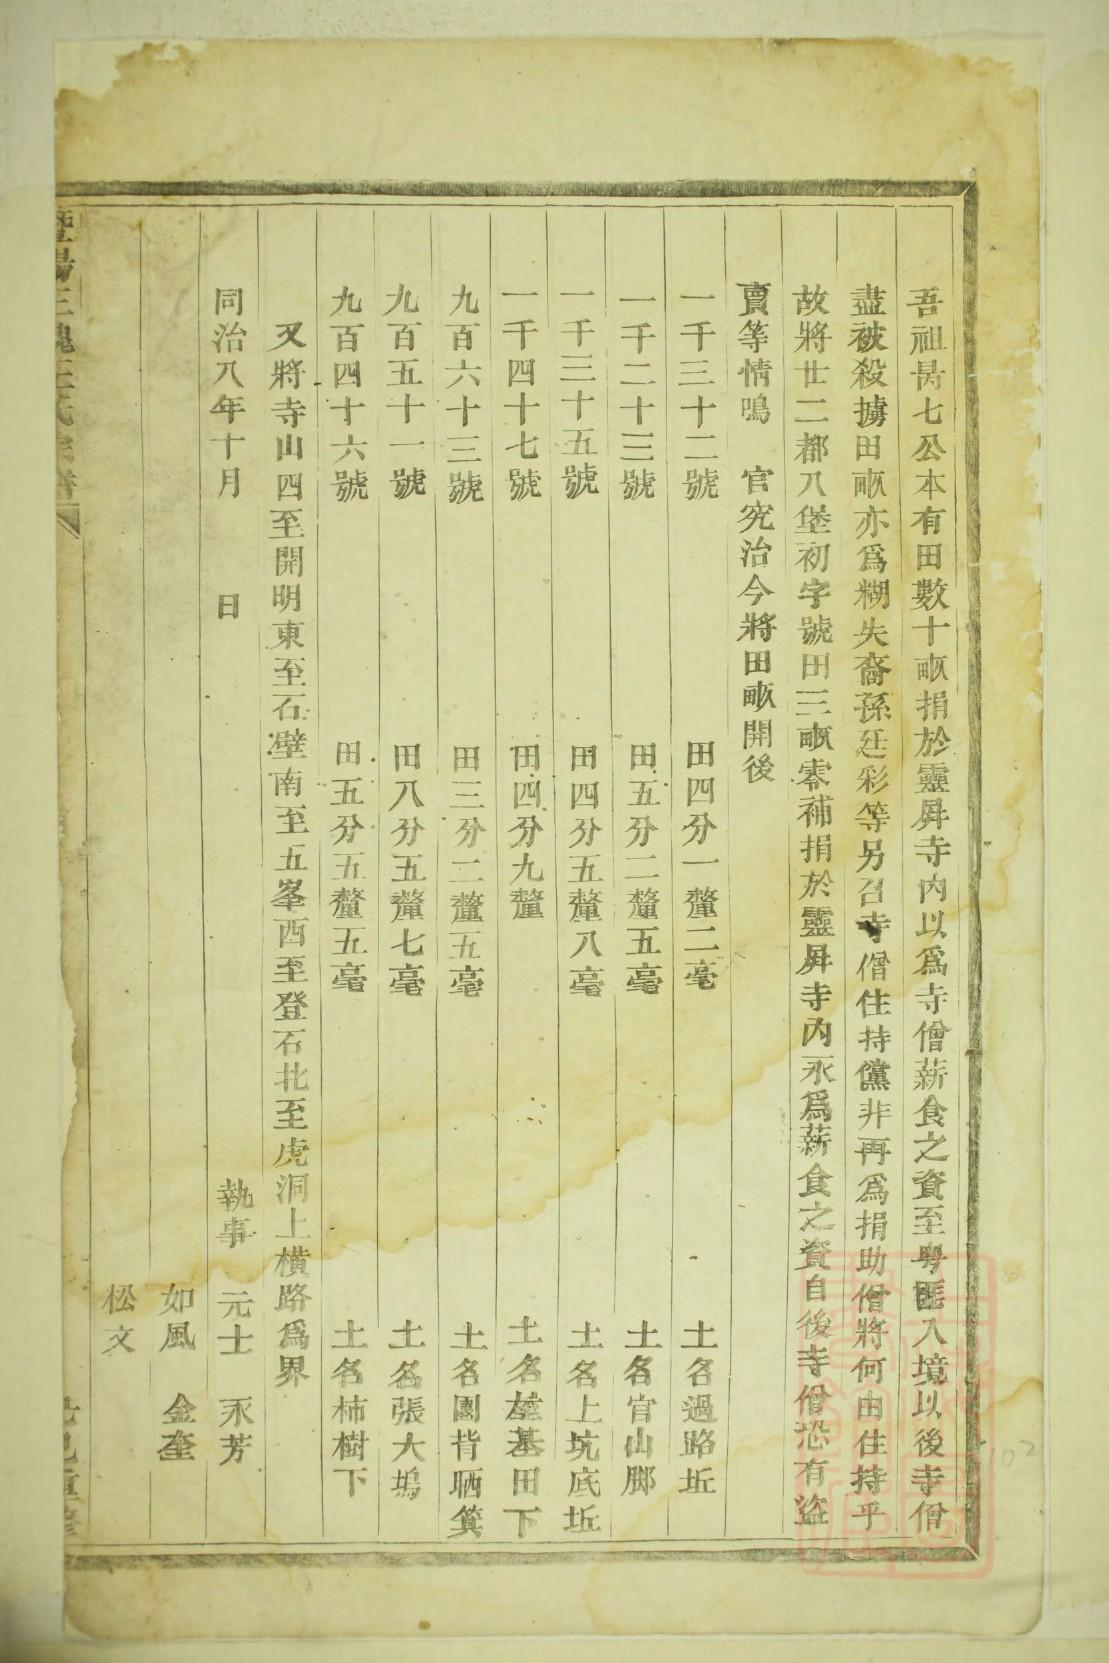 吾祖昺七公本有田數十畝捐於靈昇寺內以爲寺僧薪食之資至粤匪入境以後寺僧
盡被殺擄田畝亦爲糊失裔孫廷彩等另召寺僧住持儻非再爲捐助僧將何由住持乎
故將廿二都八堡初字號田三畝零補捐於靈昇寺內永爲薪食之資自後寺僧恐有盜
賣等情鳴 官究治今將田畝開後
一千三十二號 田四分一釐二毫 土名過路坵
一千二十三號 田五分二釐五毫 土名官山脚
一千三十五號 田四分五釐八毫 土名上坑底坵
一千四十七號 田四分九釐 土名基田下
九百六十三號 田三分二釐五毫 土名園背晒箕
九百五十一號 田八分五釐七毫 土名張大塢
九百四十六號 田五分五釐五毫 土名柿樹下
又將寺山四至開明東至石壁南至五峯西至登石北至虎洞上橫路爲界
同治八年十月 日 執事 元士 永芳
如風 金奎
松文